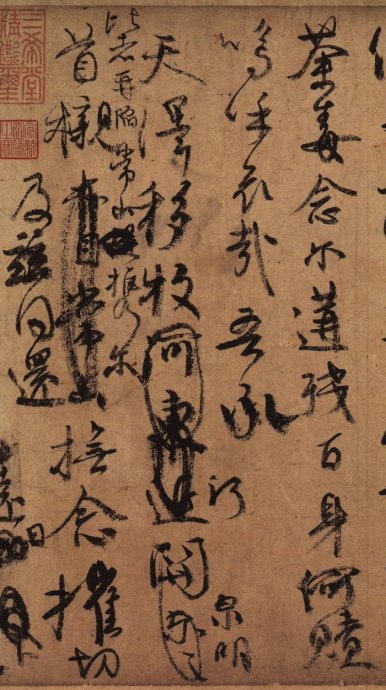 荼毒念尔遘殘百身何贖
嗚呼哀哉吾承
天澤移牧河東近河關
泉明
比者再陷常山攜尔
首櫬亦自常山撫念摧切
及茲同還
三希堂
精鑑璽